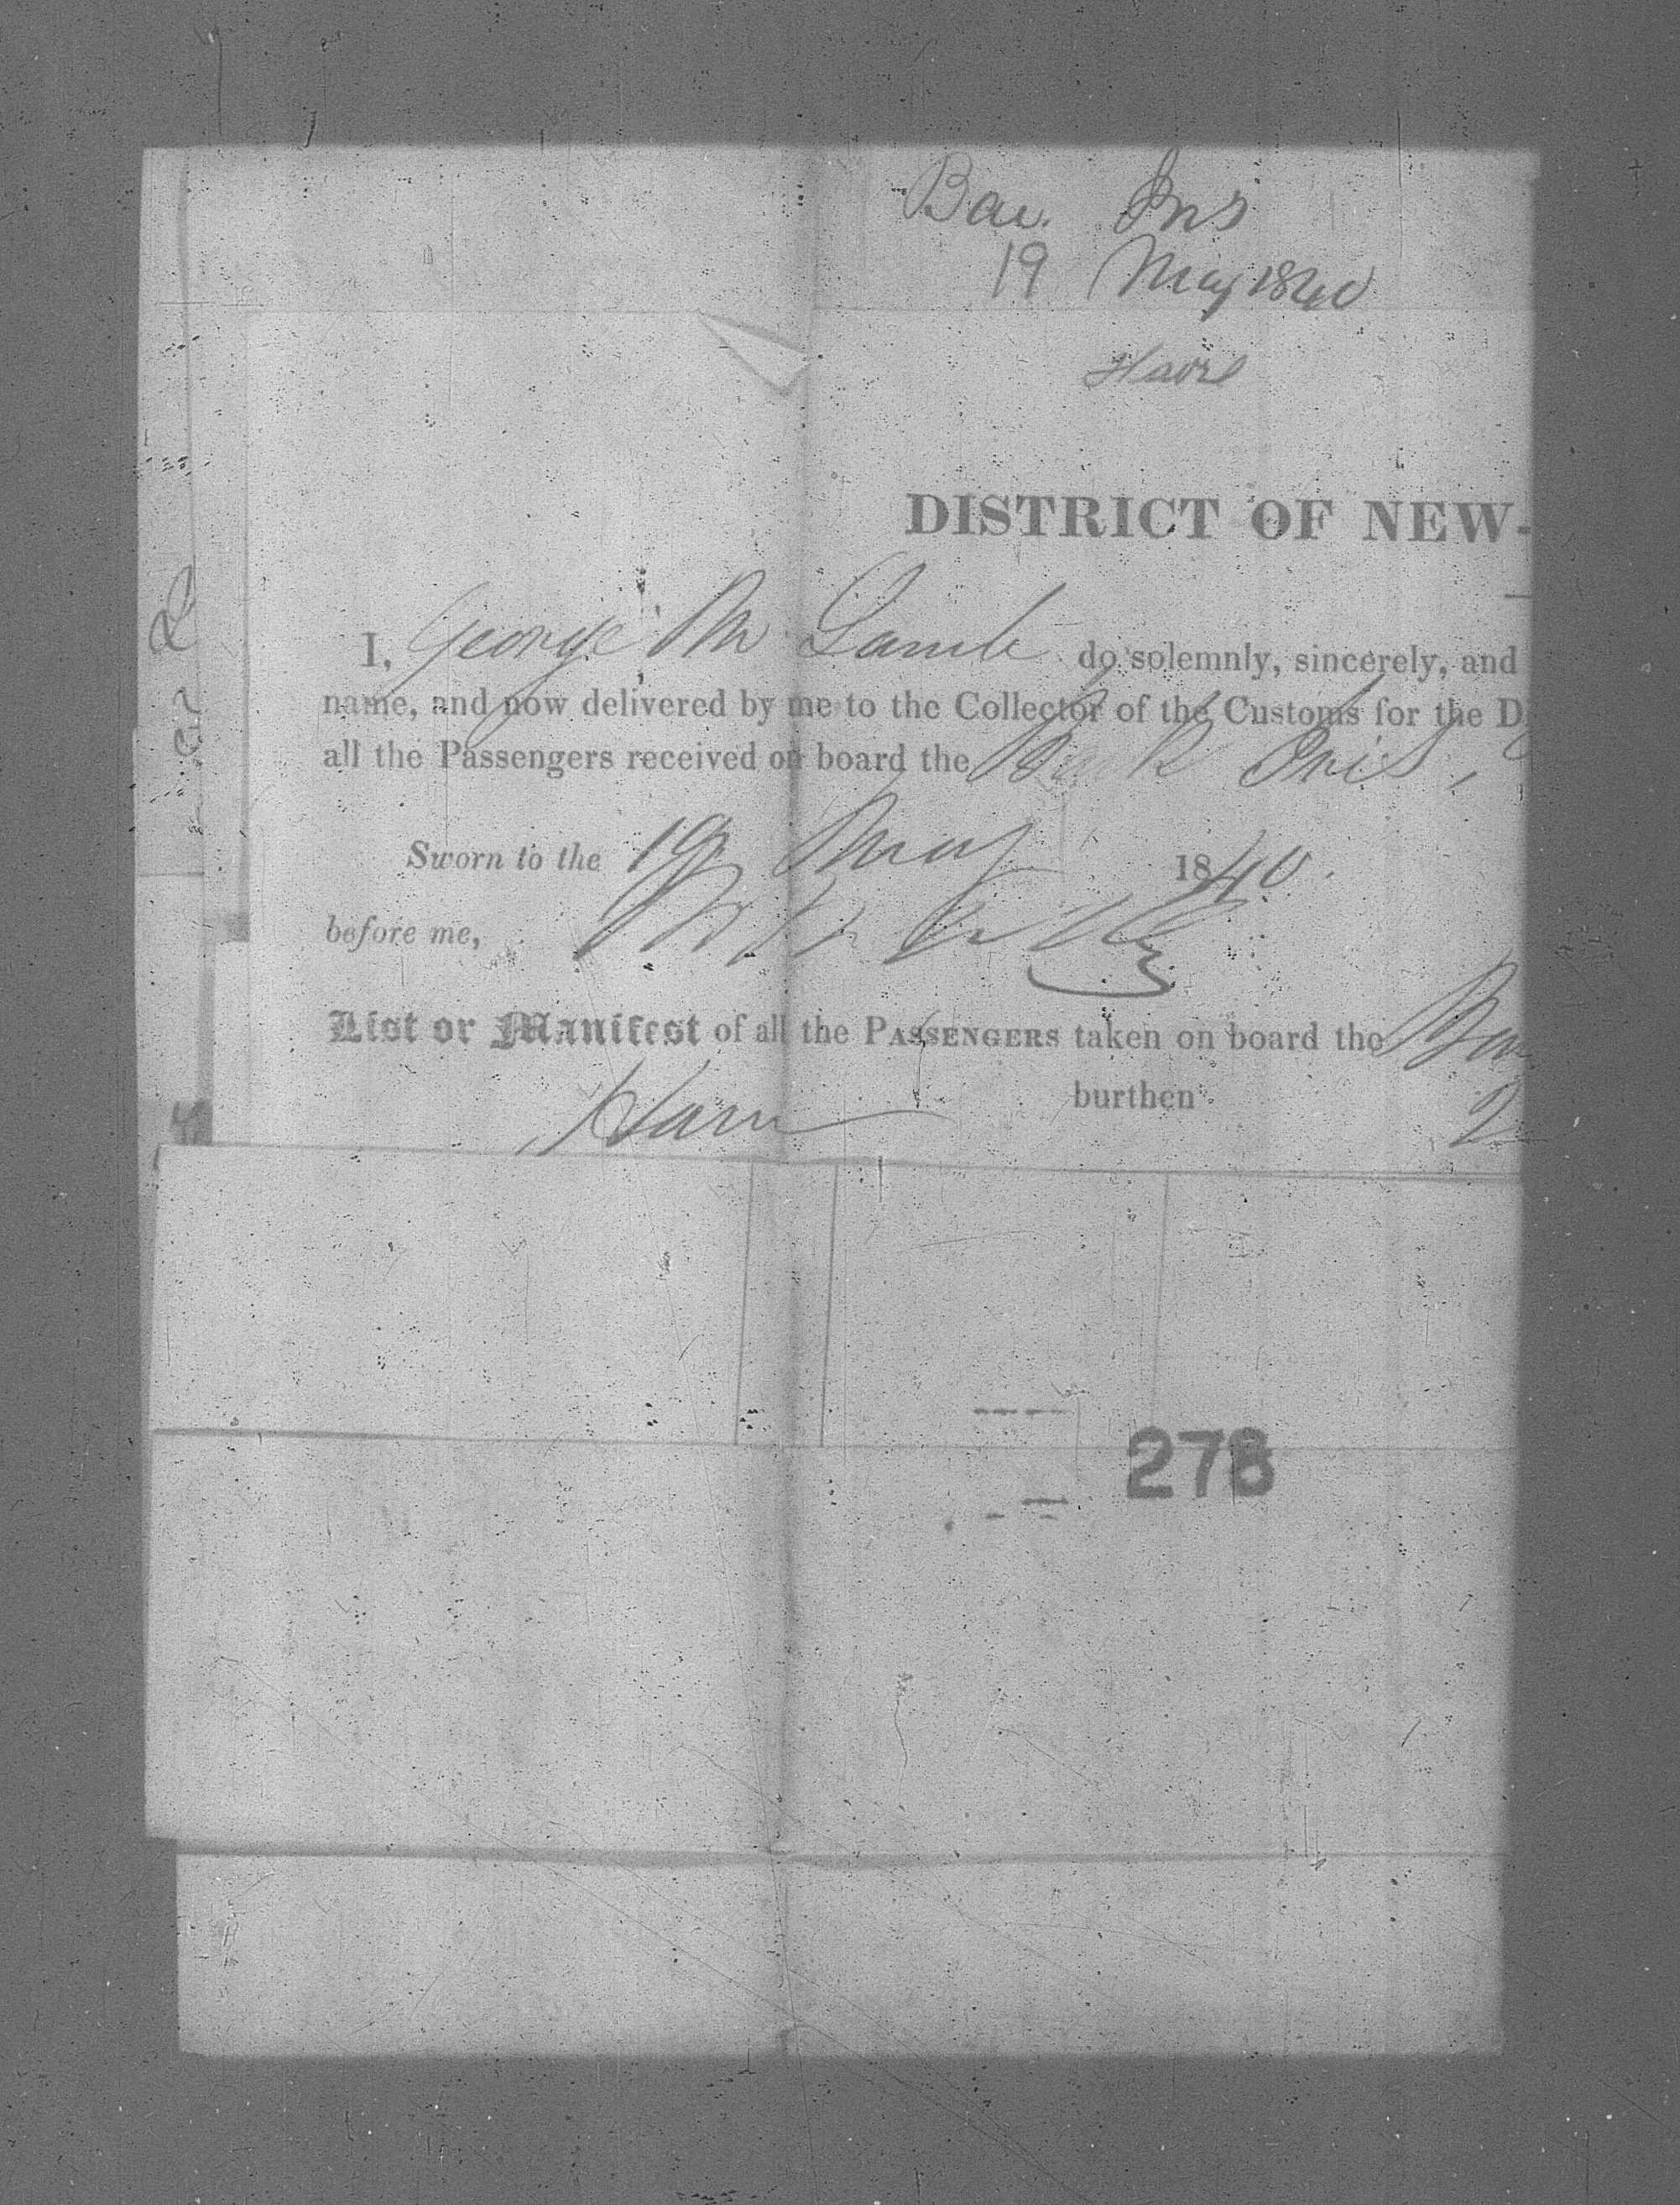 19 May 1840
Havre
DISTRICT OF NEW-
I, George M Lamb do solemnly, sincerely, and
name, and now delivered by me to the Collector of the Customs for the D
all the Passengers received on board the Bark Iris,
Sworn to the 19 May 1840.
before me,
List or Manifest of all the PASSENGERS taken on board the
burthen
278